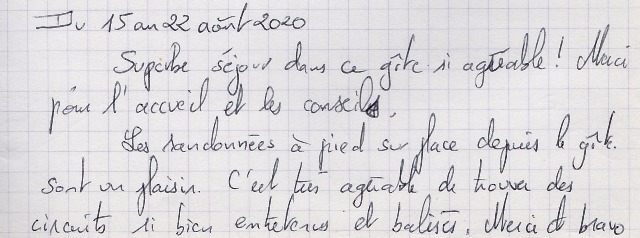 Du 15 au 22 août 2020
Superbe séjour dans ce gîte si agréable ! Merci
pour l'accueil et les conseils.
Les randonnées à pied sur place depuis le gîte
sont un plaisir. C'est très agréable de trouver des
circuits si bien entretenus et balisés. Merci et bravo